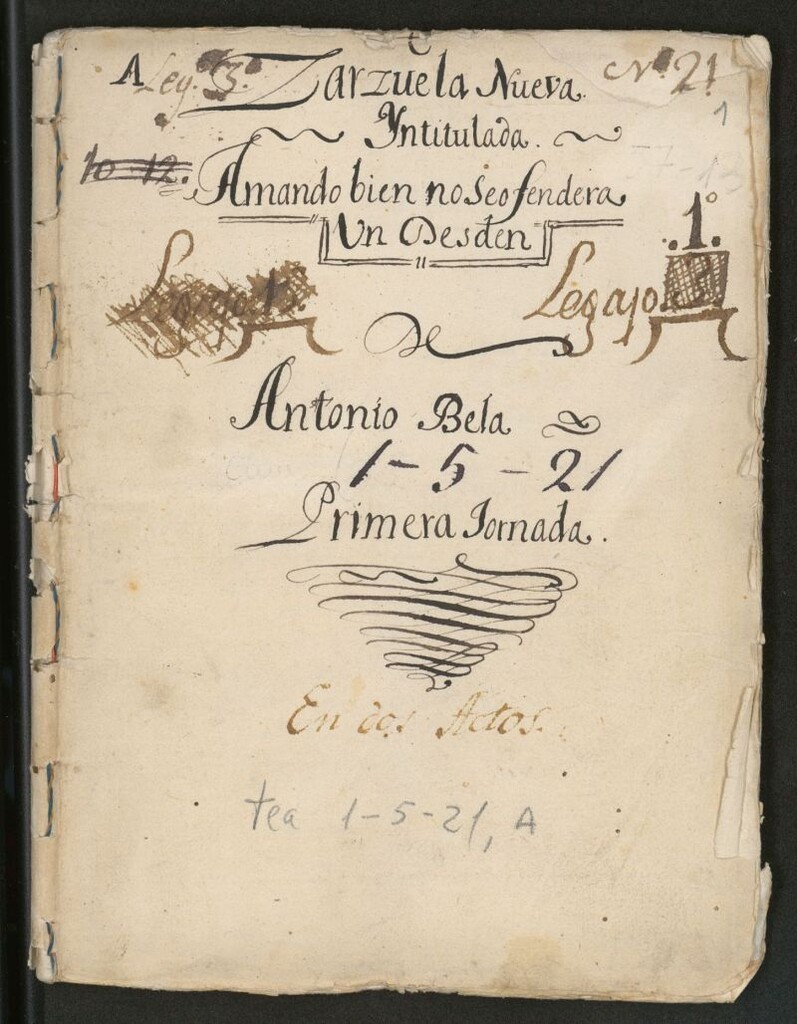 A Leg.º 3.º Zarzuela Nueva. Nº 21
1
Yntitulada.
10-12.
Amando bien no Se ofendera
Un Desden
.1.º
Legajo 1º.
Legajo. 3.
De
Antonio Bela
1-5-21
Primera Jornada.
En dos Actos.
tea 1-5-21, A